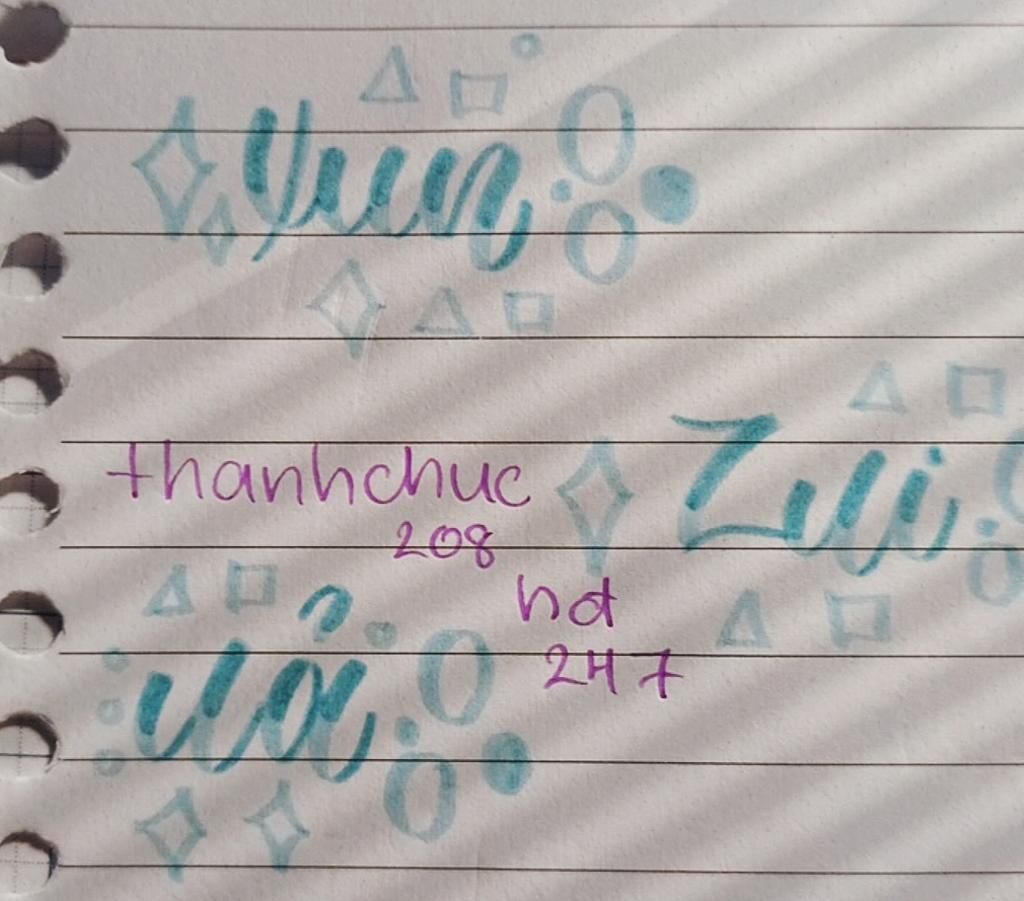 Yun
Zui
thanhchuc
208
hd
247
uả